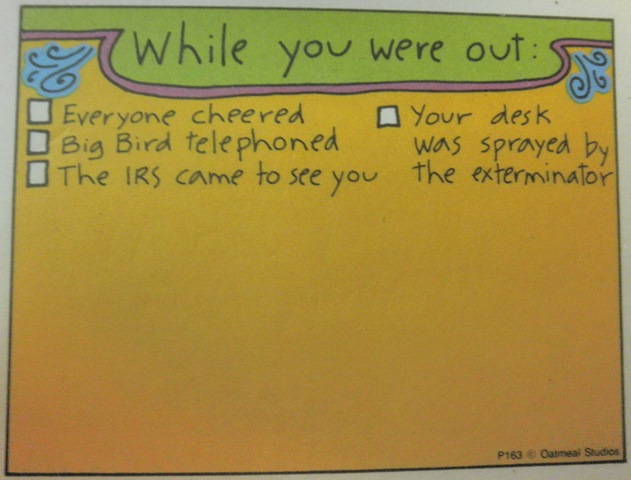 While you were out:
Everyone cheered
Big Bird telephoned
The IRS came to see you
Your desk
was sprayed by
the exterminator
P163 © Oatmeal Studios